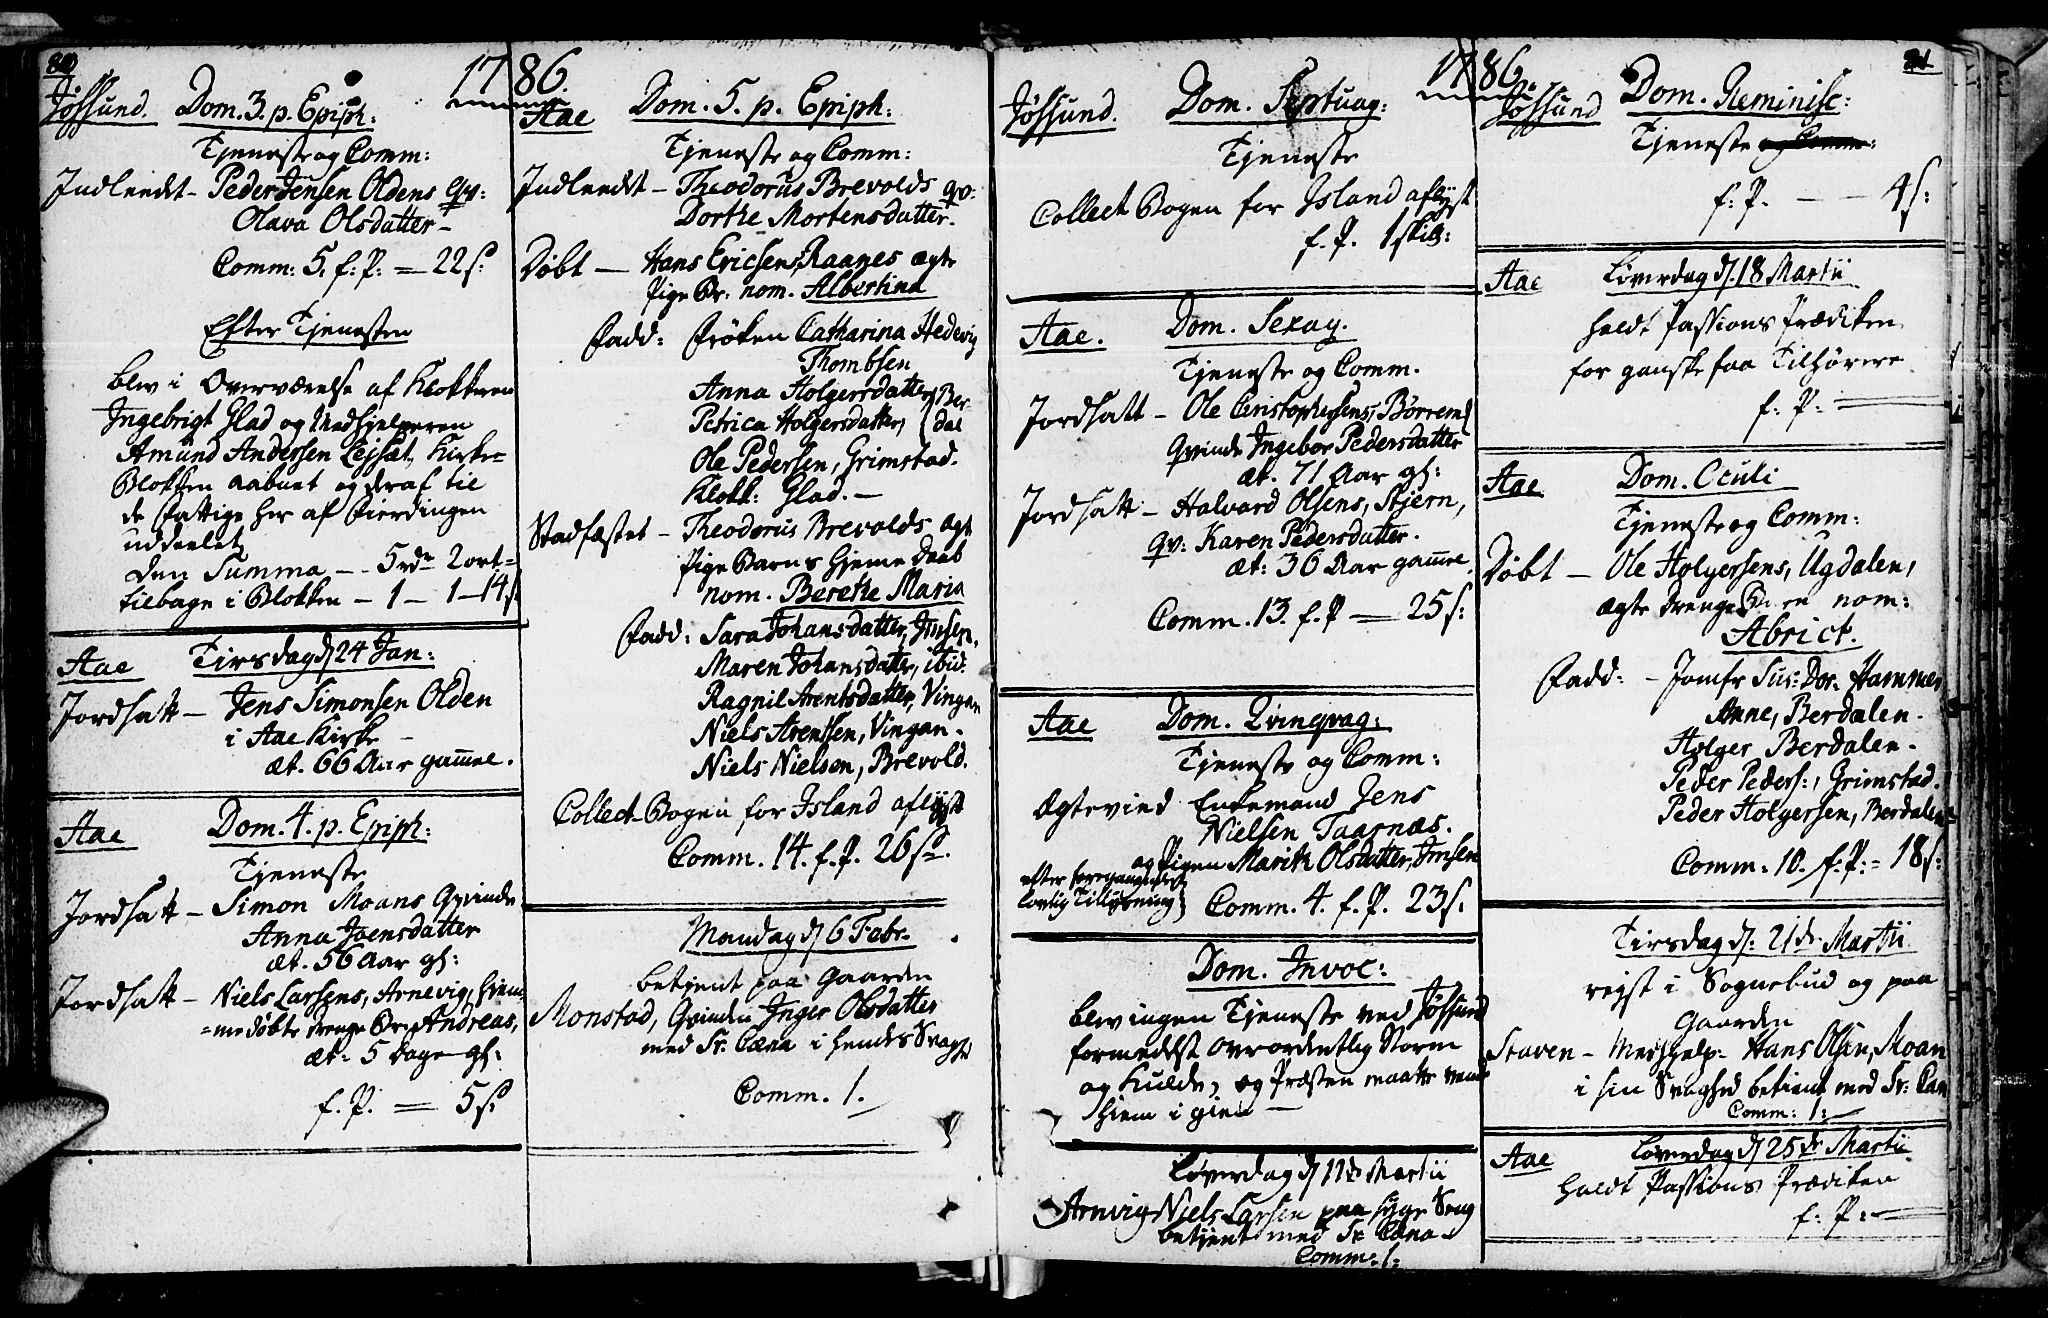 80
1786.
Jøssund. Dom. 3. p. Epiph:
Tjeneste og Comm:
Indleedt - Peder Jensen Oldens qv:
Olava Olsdatter -
Comm: 5. f: P: = 22 s:
Efter Tjenesten
blev i Overværelse af Klokkeren
Ingebrigt Glad og Medhjelperen
Amund Andersen Lejsæt, Kirke=
Blokken aabnet og deraf til
de Fattige her af Fierdingen
uddeelet
den Summa - - 5 rdr 2 ort =
tilbage i Blokken - 1 - 1 - 14 s
Aae Tirsdag d 24 Jan:
Jordsatt - Jens Simonsen Olden
i Aae Kirke -
æt. 66 Aar gamel.
Aae Dom. 4. p. Epiph:
Tjeneste
Jordsatt - Simon Moans Qvinde
Anna Joensdatter
æt. 56 Aar gl:
Jordsatt - Niels Larsens, Arnevig, hiem
=medøbte drenge Br. Andreas,
æt. 5 Dage gl:
f. P. = 5 s:
Aae Dom. 5. p. Epiph:
Tjeneste og Comm:
Indleedt - Theodorus Brevolds qv:
Dorthe Mortensdatter.
Døbt - Hans Ericsens, Raanes ægte
Pige Br: nom. Albertina
Fadd: Frøken Catharina Hedevig
Thombsen
Anna Holgersdatter } Ber-
Petrica Holgersdatter, } dal
Ole Pedersen, Grimstad.
Klokk: Glad. -
Stadfæstet - Theodorus Brevolds ægt
Pige Barns Hjeme Daab
nom. Berethe Maria
Fadd: Sara Johansdatter, Imsen.
Maren Johansdatter, ibid:
Ragnil Arentsdatter, Vingan
Niels Arentsen, Vingan.
Niels Nielsen, Brevold.
Collect-Bogen for Island aflyst
Comm. 14. f. P. 26 s.
Mandag d 6 Febr.
betjent paa Gaarden
Monstad, Qvinden Inger Olsdatter
med Sr. Cæna i hendes Svagh
Comm. 1.
1786. 81
Jøssund. Dom. Septuag:
Tjeneste
Collect Bogen for Island aflyst
f. P. 1 skil:
Aae. Dom. Sexag.
Tjeneste og Comm.
Jordsatt - Ole Christophersens, Børrem
Qvinde Ingebor Pedersdatter
æt. 71 Aar gl:
Jordsatt - Halvard Olsens, Stjern,
qv: Karen Pedersdatter.
æt: 36 Aar gamel.
Comm. 13. f. P = 25 s:
Aae Dom. Qvinqvag:
Tjeneste og Comm:
Ægtevied Enkemand Jens
Nielsen Taarnæs.
og Pigen Marith Olsdatter, Imsen
efter foregaaende
lovlig Tillysning } Comm. 4. f. P. 23 s.
Dom. Invoc:
blev ingen Tjeneste ved Jøssund
formedelst overordentlig Storm
og Kulde, og Præsten maatte vende
hiem i gien -
Løverdag d 11te Martii
Arnvig Niels Larsen paa syge Seng
betjent med Sr Cæna
Comm. 1.
Jøssund Dom. Reminisc:
Tjeneste og Comm:
f: P. - - 4 s:
Aae Løverdag d. 18 Martii
holdt Passions Prædiken
for ganske faa Tilhørere
f: P: =
Aae Dom. Oculi
Tjeneste og Comm:
Døbt - Ole Holgersens, Ugdalen,
ægte drenge nom:
Abrict.
Fadd: - Jomfr Sus: Dor. Hammer
Anne, Berdalen.
Holger Berdalen.
Peder Peders:, Grimstad.
Peder Holgersen, Berdalen
Comm: 10. f: P: = 18 s:
Tirsdag d: 21de Martii
rejst i Sognebud og paa
Gaarden
Staven - Medhjelp- Hans Olsen, Moan
i sin Svaghed betient med Sr: Cæn
Comm: 1:
Aae Løverdag d 25de Martii
holdt Passions Prædiken
f: P: =